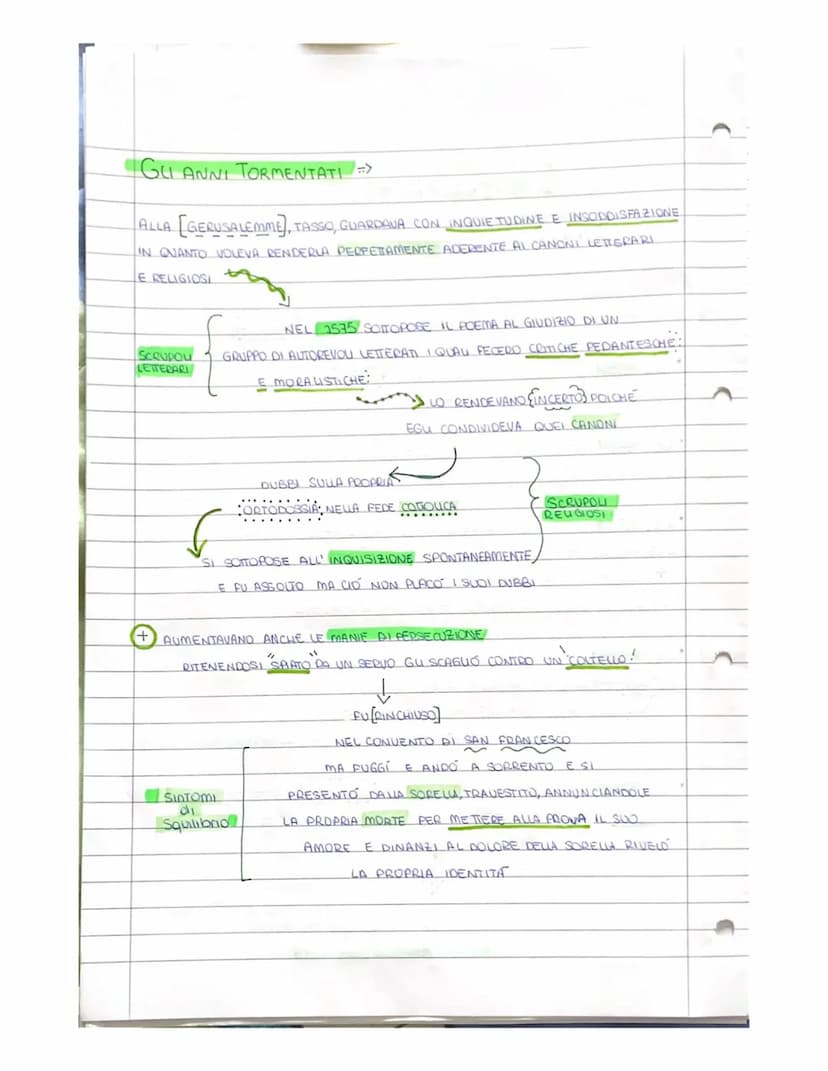 GLI ANNI TORMENTATI =>
ALLA [GERUSALEMME], TASSO, GUARDAVA CON INQUIETUDINE E INSODDISFAZIONE
IN QUANTO VOLEVA RENDERLA PERFETTAMENTE ADERENTE AI CANONI LETTERARI
E RELIGIOSI
NEL 1575 SOTTOPOSE IL POEMA AL GIUDIZIO DI UN
SCRUPOLI LETTERARI
GRUPPO DI AUTOREVOLI LETTERATI I QUALI FECERO CRITICHE PEDANTESCHE
E MORALISTICHE
LO RENDEVANO {INCERTO} POICHÉ
EGLI CONDIVIDEVA QUEI CANONI
DUBBI SULLA PROPRIA
ORTODOSSIA NELLA FEDE CATTOLICA
SCRUPOLI
RELIGIOSI
SI SOTTOPOSE ALL'INQUISIZIONE SPONTANEAMENTE
E FU ASSOLTO MA CIÒ NON PLACÒ I SUOI DUBBI
+ AUMENTAVANO ANCHE LE MANIE DI PERSECUZIONE
RITENENDOSI "SPIATO" DA UN SERVO GLI SCAGLIÒ CONTRO UN COLTELLO!
FU [RINCHIUSO]
NEL CONVENTO DI SAN FRANCESCO
MA FUGGÌ E ANDÒ A SORRENTO E SI
Sintomi
di
Squilibrio
PRESENTÒ DALLA SORELLA, TRAVESTITO, ANNUNCIANDOLE
LA PROPRIA MORTE PER METTERE ALLA PROVA IL SUO
AMORE E DINANZI AL DOLORE DELLA SORELLA RIVELÒ
LA PROPRIA IDENTITÀ